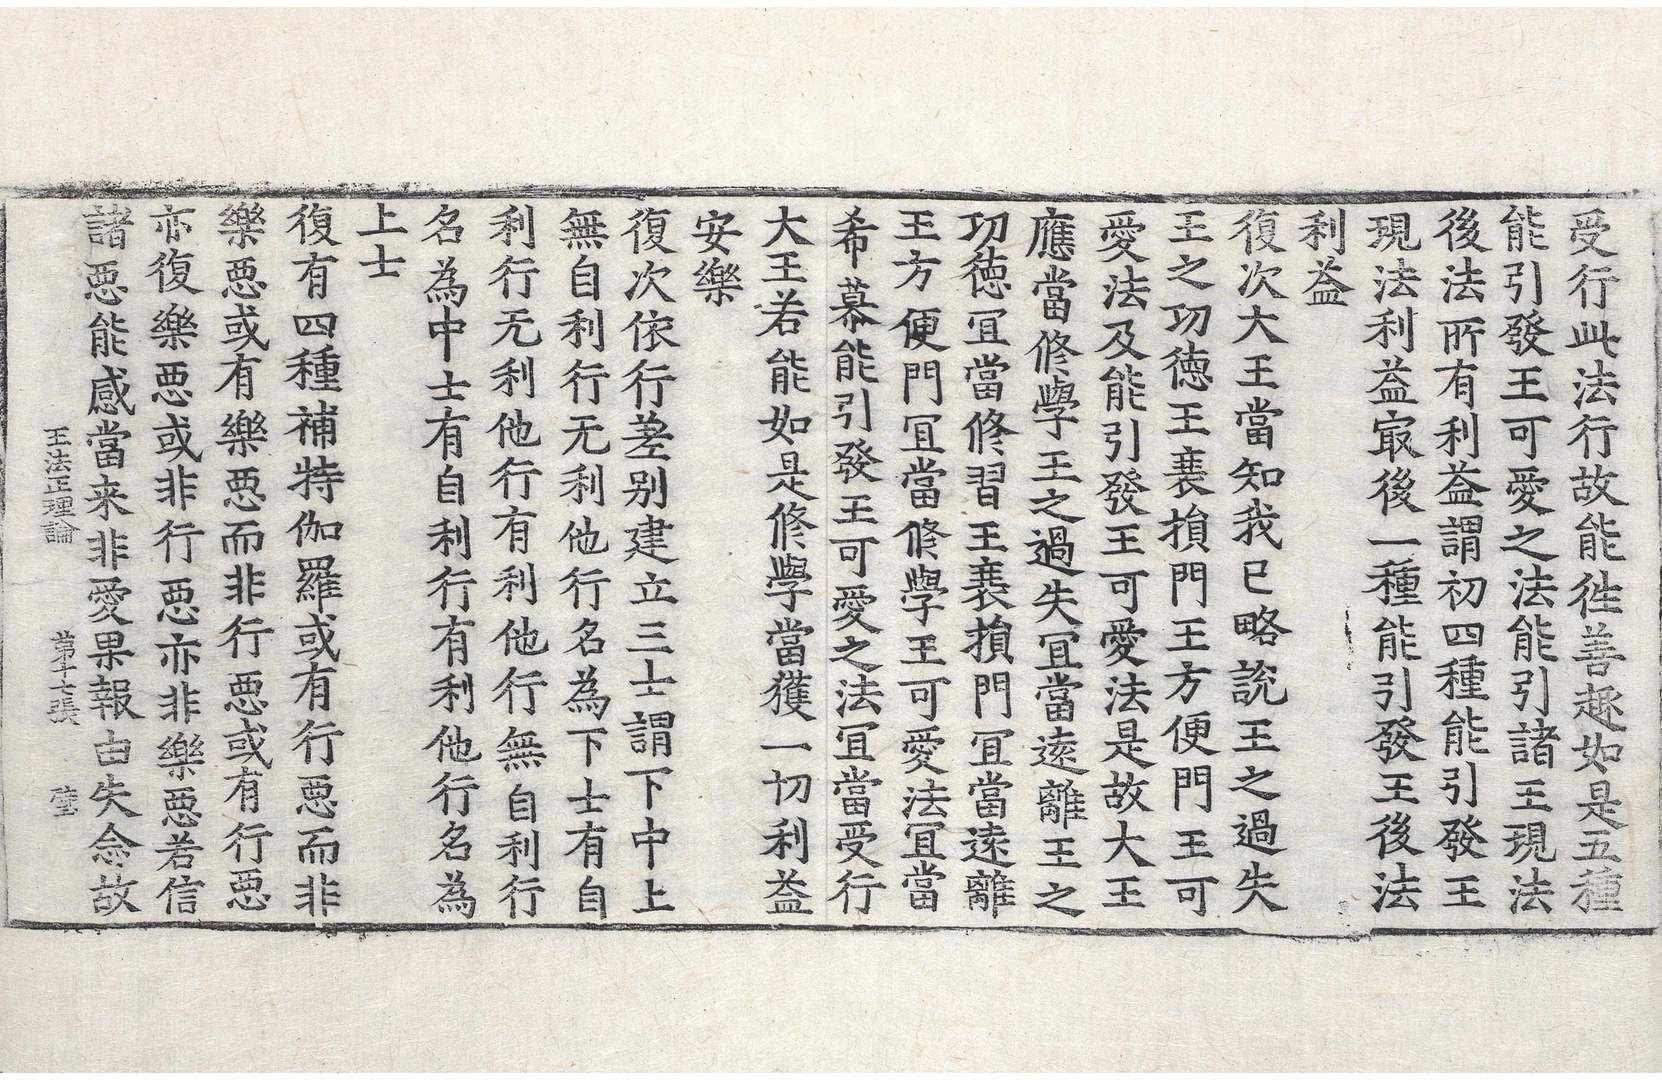 受行此法行故能徃善趣如是五種
能引發王可愛之法能引諸王現法
後法所有利益謂初四種能引發王
現法利益㝡後一種能引發王後法
利益
復次大王當知我已略說王之過失
王之功德王衰損門王方便門王可
愛法及能引發王可愛法是故大王
應當修學王之過失冝當遠離王之
功德冝當修習王衰損門冝當遠離
王方便門冝當修學王可愛法冝當
希慕能引發王可愛之法冝當受行
大王若能如是修學當獲一切利益
安樂
復次依行差别建立三士謂下中上
無自利行无利他行名為下士有自
利行无利他行有利他行無自利行
名為中士有自利行有利他行名為
上士
復有四種補特伽羅或有行惡而非
樂惡或有樂惡而非行惡或有行惡
亦復樂惡或非行惡亦非樂惡若信
諸惡能感當来非愛果報由失念故
王法正理論　第十七張　璧